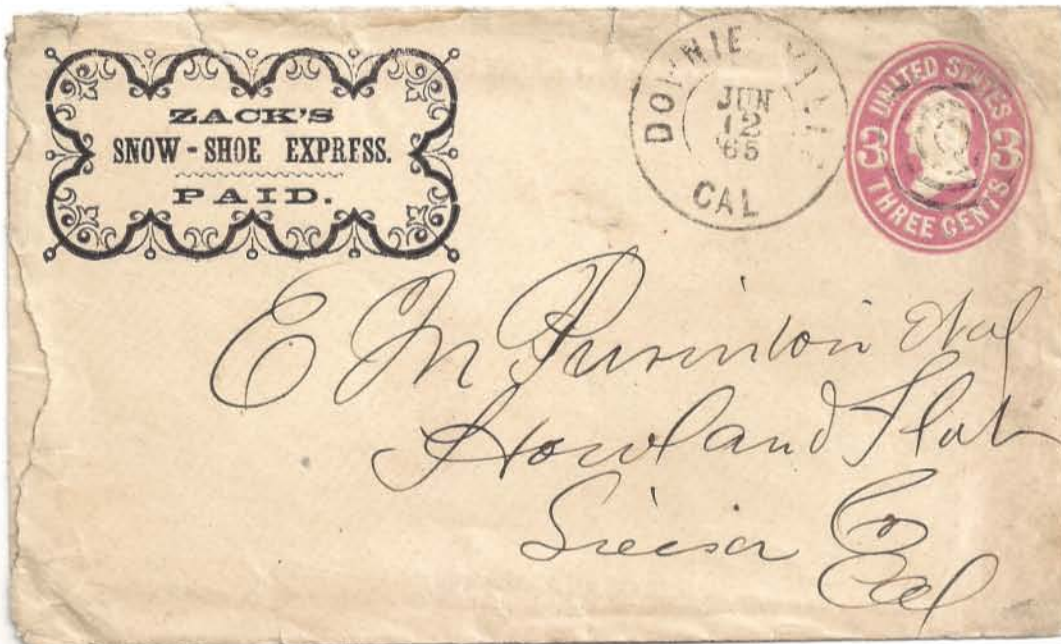 ZACK'S
SNOW-SHOE EXPRESS.
PAID.
DOWNIEVILLE
JUN
12
'65
CAL
UNITED STATES
3 3
THREE CENTS.
E M Purinton
Howland Flat
Sierra Co
Cal